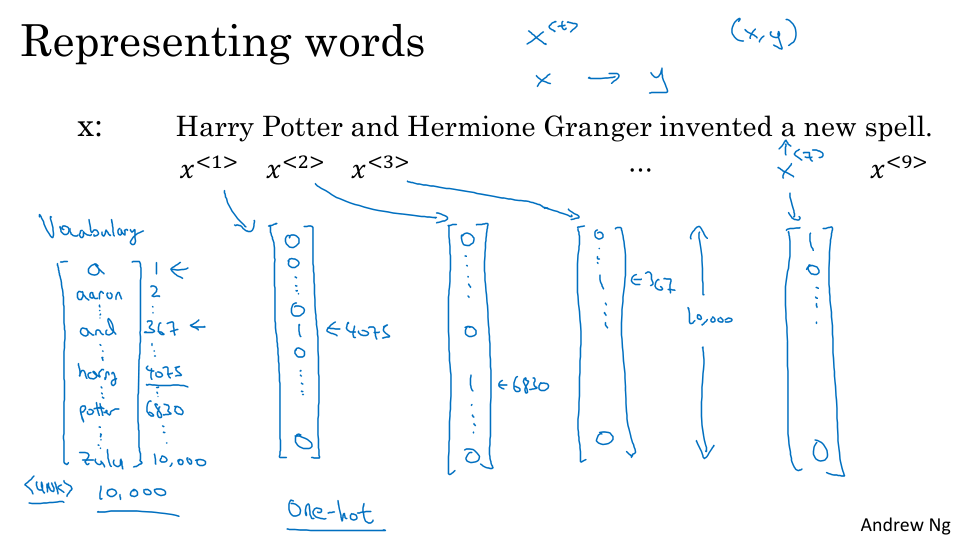 Representing words
x<t>
(x,y)
x → y
x: Harry Potter and Hermione Granger invented a new spell.
x<1> x<2> x<3> ... x<7> x<9>
Vocabulary
a 1 ←
aaron 2
⋮ ⋮
and 367 ←
⋮ ⋮
harry 4075
⋮ ⋮
potter 6830
⋮ ⋮
zulu 10,000
<UNK> 10,000
0
0
⋮
0
1 ← 4075
0
⋮
0
0
⋮
0
1 ← 6830
⋮
0
0
⋮
1 ← 367
⋮
0
10,000
1
0
⋮
0
One-hot
Andrew Ng